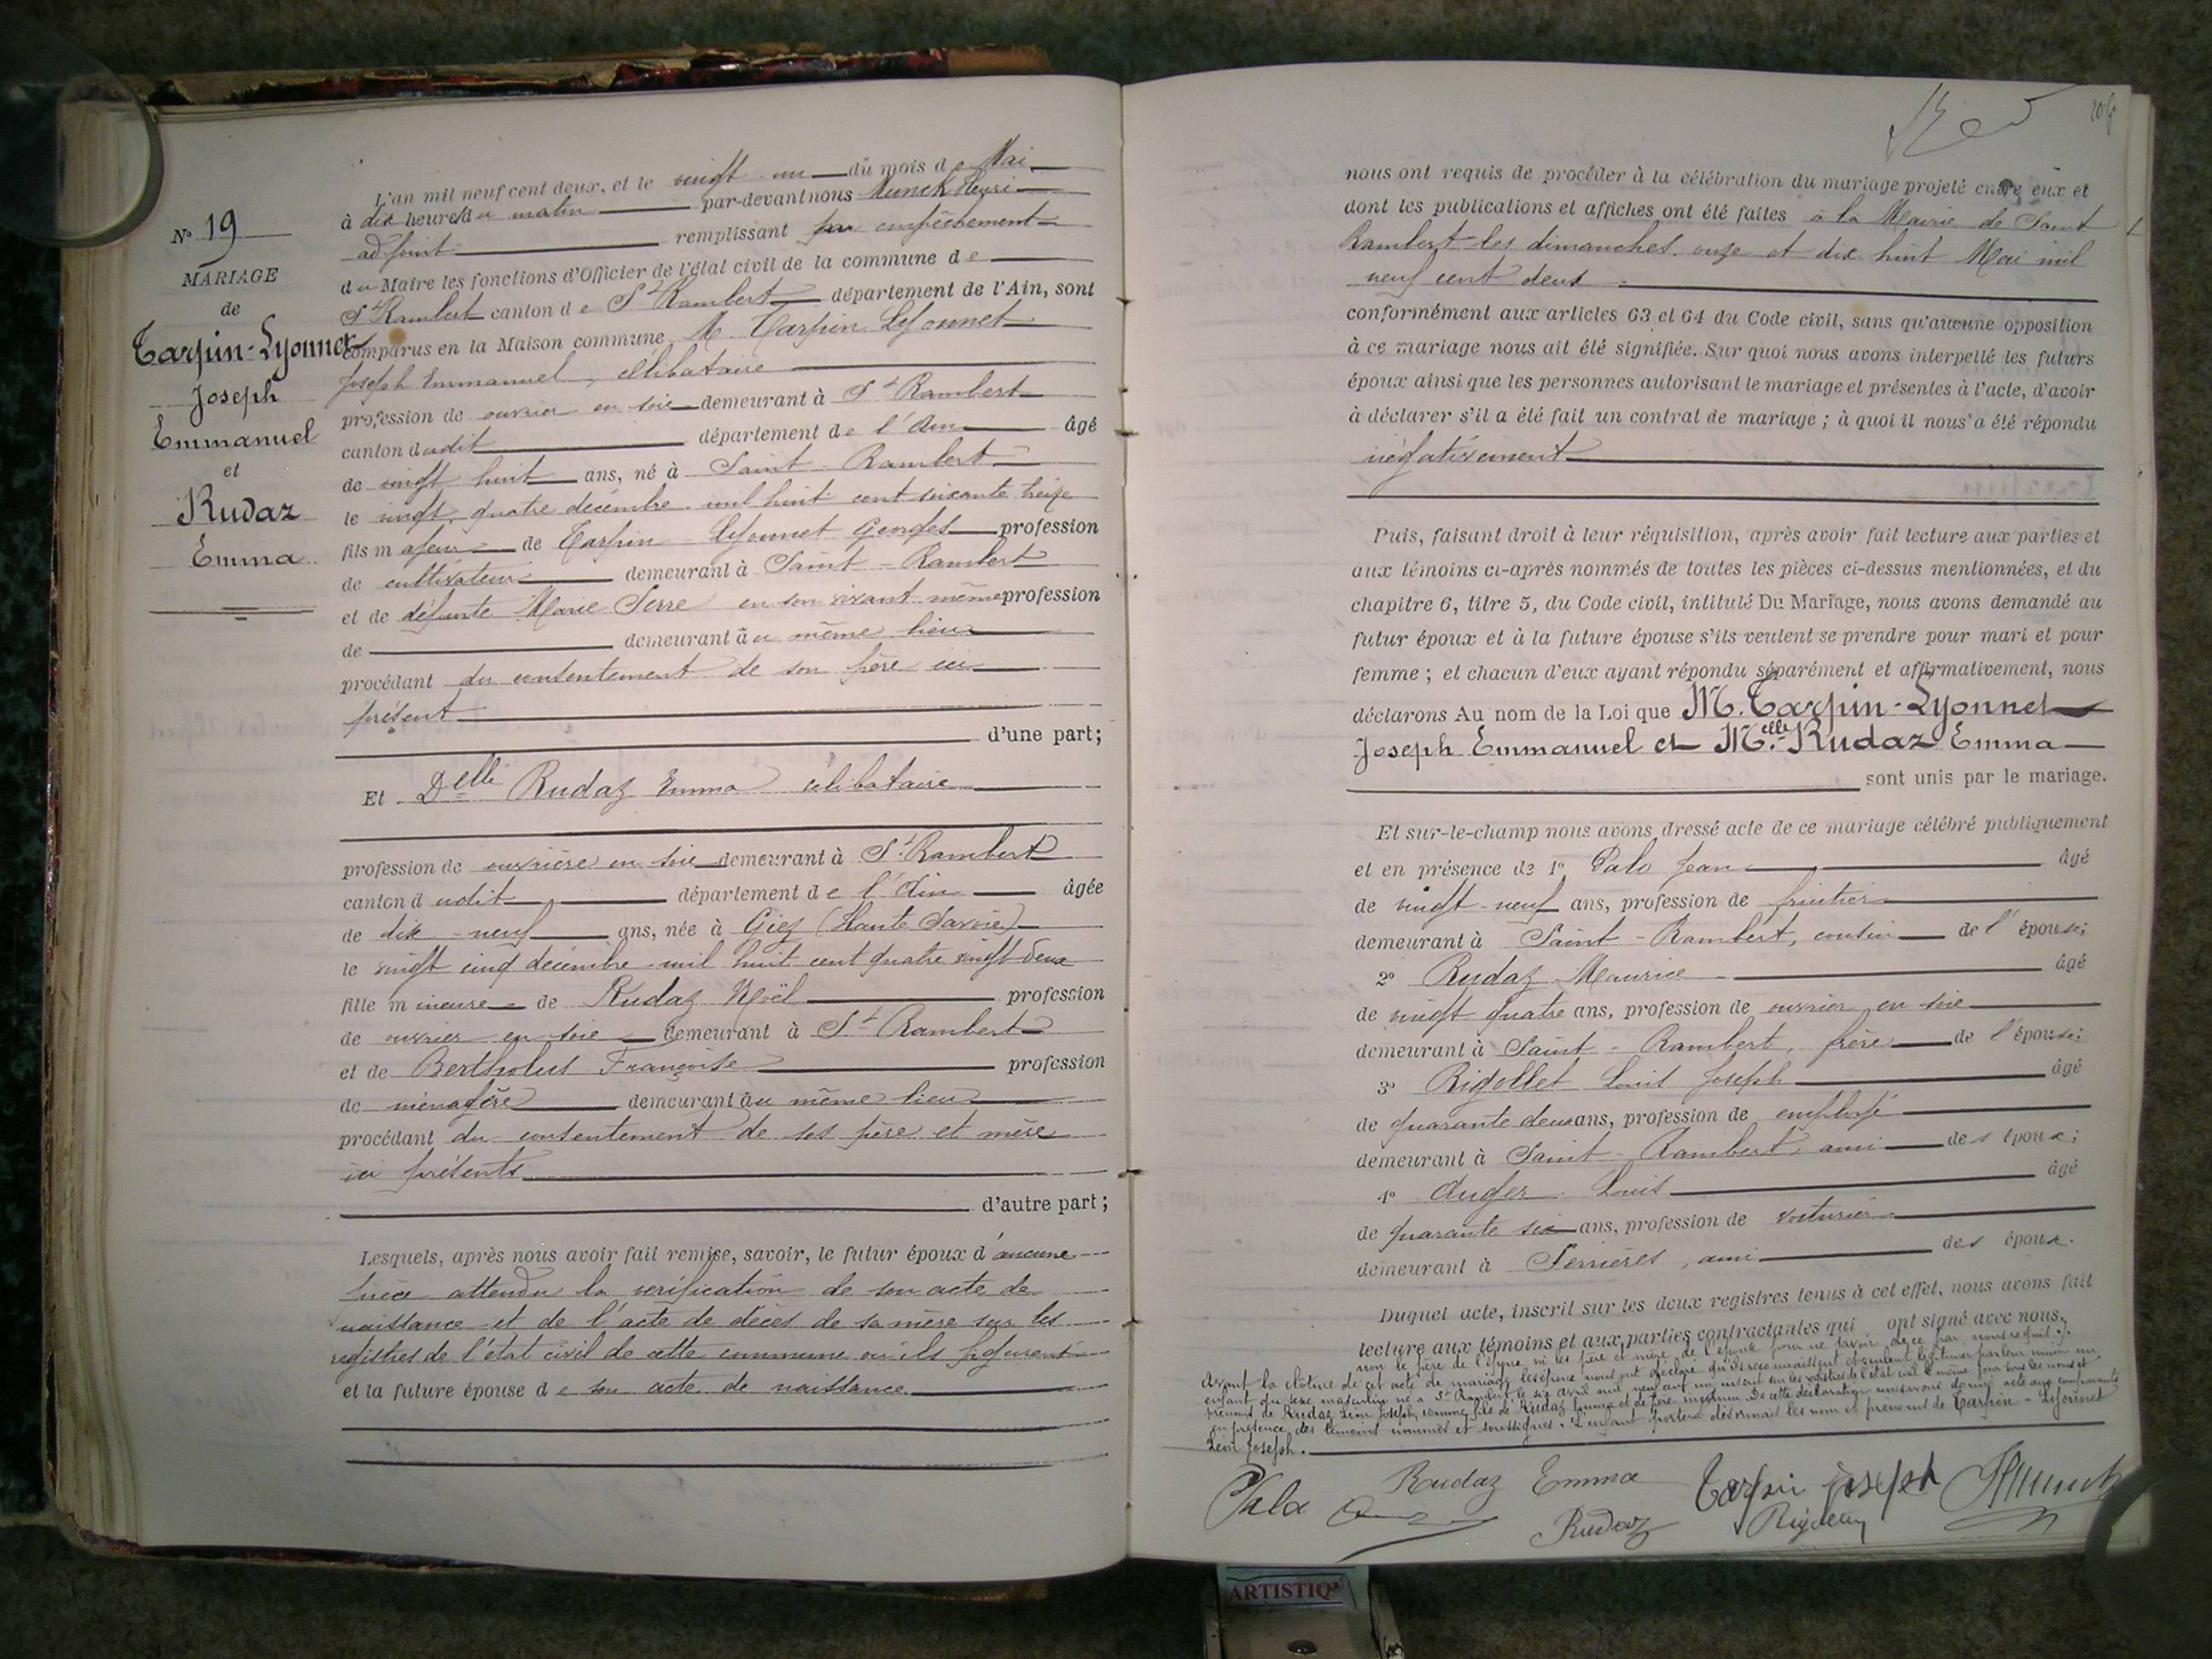 N° 19
MARIAGE
de
Tarpin-Lyonnet
Joseph
Emmanuel
et
Rudaz
Emma
L'an mil neuf cent deux, et le vingt un du mois de Mai
à dix heures du matin par-devant nous Munck Henri
adjoint remplissant par empêchement
du Maire les fonctions d'Officier de l'état civil de la commune de
St Rambert canton de St Rambert département de l'Ain, sont
comparus en la Maison commune M. Tarpin Lyonnet
Joseph Emmanuel, célibataire
profession de ouvrier en soie demeurant à St Rambert
canton dudit département de l'Ain âgé
de vingt huit ans, né à Saint-Rambert
le vingt quatre décembre mil huit cent soixante treize
fils majeur de Tarpin-Lyonnet Georges profession
de cultivateur demeurant à Saint-Rambert
et de défunte Marie Serre en son vivant même profession
de demeurant au même lieu
procédant du consentement de son père ici
présent
d'une part;
Et Delle Rudaz Emma célibataire
profession de ouvrière en soie demeurant à St Rambert
canton dudit département de l'Ain âgée
de dix-neuf ans, née à Giez (Haute Savoie)
le vingt cinq décembre mil huit cent quatre vingt deux
fille mineure de Rudaz Noël profession
de ouvrier en soie demeurant à St Rambert
et de Bertholus Françoise profession
de ménagère demeurant au même lieu
procédant du consentement de ses père et mère
ici présents
d'autre part;
Lesquels, après nous avoir fait remise, savoir, le futur époux d'aucune
pièce attendu la vérification de son acte de
naissance et de l'acte de décès de sa mère sur les
registres de l'état civil de cette commune où ils figurent
et la future épouse de son acte de naissance.
nous ont requis de procéder à la célébration du mariage projeté entre eux et
dont les publications et affiches ont été faites à la Mairie de Saint
Rambert les dimanches onze et dix huit Mai mil
neuf cent deux
conformément aux articles 63 et 64 du Code civil, sans qu'aucune opposition
à ce mariage nous ait été signifiée. Sur quoi nous avons interpellé les futurs
époux ainsi que les personnes autorisant le mariage et présentes à l'acte, d'avoir
à déclarer s'il a été fait un contrat de mariage; à quoi il nous a été répondu
négativement
Puis, faisant droit à leur réquisition, après avoir fait lecture aux parties et
aux témoins ci-après nommés de toutes les pièces ci-dessus mentionnées, et du
chapitre 6, titre 5, du Code civil, intitulé Du Mariage, nous avons demandé au
futur époux et à la future épouse s'ils veulent se prendre pour mari et pour
femme; et chacun d'eux ayant répondu séparément et affirmativement, nous
déclarons Au nom de la Loi que M. Tarpin-Lyonnet
Joseph Emmanuel et Melle Rudaz Emma
sont unis par le mariage.
Et sur-le-champ nous avons dressé acte de ce mariage célébré publiquement
et en présence de 1° Palo Jean âgé
de vingt-neuf ans, profession de fruitier
demeurant à Saint-Rambert, cousin de l'épouse;
2° Rudaz Maurice âgé
de vingt quatre ans, profession de ouvrier en soie
demeurant à Saint-Rambert, frère de l'épouse;
3° Rigollet Louis Joseph âgé
de quarante deux ans, profession de employé
demeurant à Saint-Rambert, ami des époux;
4° Auger Louis âgé
de quarante six ans, profession de voiturier
demeurant à Serrières, ami des époux.
Duquel acte, inscrit sur les deux registres tenus à cet effet, nous avons fait
lecture aux témoins et aux parties contractantes qui ont signé avec nous,
non le père de l'époux ni les père et mère de l'épouse pour ne savoir de ce par nous requis.
Avant la clôture de cet acte de mariage les époux nous ont déclaré qu'ils reconnaissent et veulent légitimer par leur union un
enfant du sexe masculin né à St Rambert le six avril mil neuf cent un inscrit sur les registres de l'état civil le même jour sous les noms et
prénoms de Rudaz Léon Joseph, comme fils de Rudaz Emma et de père inconnu. De cette déclaration nous avons donné acte aux comparants
en présence des témoins nommés et soussignés. L'enfant portera désormais les nom et prénoms de Tarpin-Lyonnet
Léon Joseph.
Palo Rudaz Emma Tarpin joseph HMunck
Rudaz
ARTISTIQ